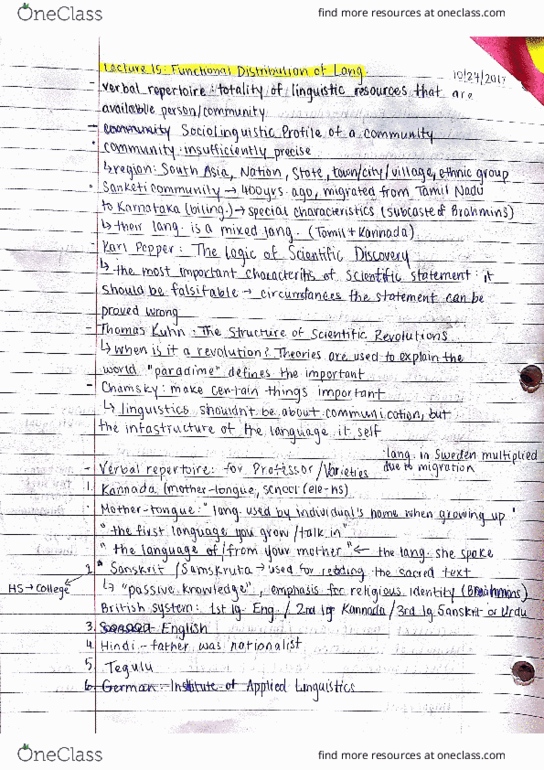 OneClass
find more resources at oneclass.com
Lecture 15: Functional Distribution of Lang.
10/24/2017
verbal repertoire: totality of linguistic resources that are
available person/community
- community Sociolinguistic Profile of a community
• community: insufficiently precise
↳ region: South Asia, Nation, State, town/city/village, ethnic group
• Sanketi community → 400yrs. ago, migrated from Tamil Nadu
to Karnataka (biling.) → special characteristics (subcaste of Brahmins)
↳ their lang. is a mixed lang. (Tamil + Kannada)
- Karl Pepper: The Logic of Scientific Discovery
↳ the most important characteritis of scientific statement: it
should be falsifable → circumstances the statement can be
proved wrong
- Thomas Kuhn: The Structure of Scientific Revolutions
↳ When is it a revolution? Theories are used to explain the
world "paradime" defines the important
- Chomsky: make certain things important
↳ linguistics shouldn't be about communication, but
the infastructure of the language it self
• lang. in Sweden multiplied
due to migration
- Verbal repertoire: for Professor/Varieties
1. Kannada (mother-tongue, school (ele-hs)
• Mother-tongue: "lang. used by individual's home when growing up"
"the first language you grow/talk in"
"the language of/from your mother" ← the lang. she spoke
2. Sanskrit/Samskruta → used for reading the sacred text
HS → College
↳ "passive knowledge", emphasis for religious identity (Brahmans)
British system: 1st lg. Eng. / 2nd lg Kannada / 3rd lg Sanskrit or Urdu
3. English
4. Hindi - father was nationalist
5. Tegulu
6. German - Institute of Applied Linguistics
OneClass
find more resources at oneclass.com